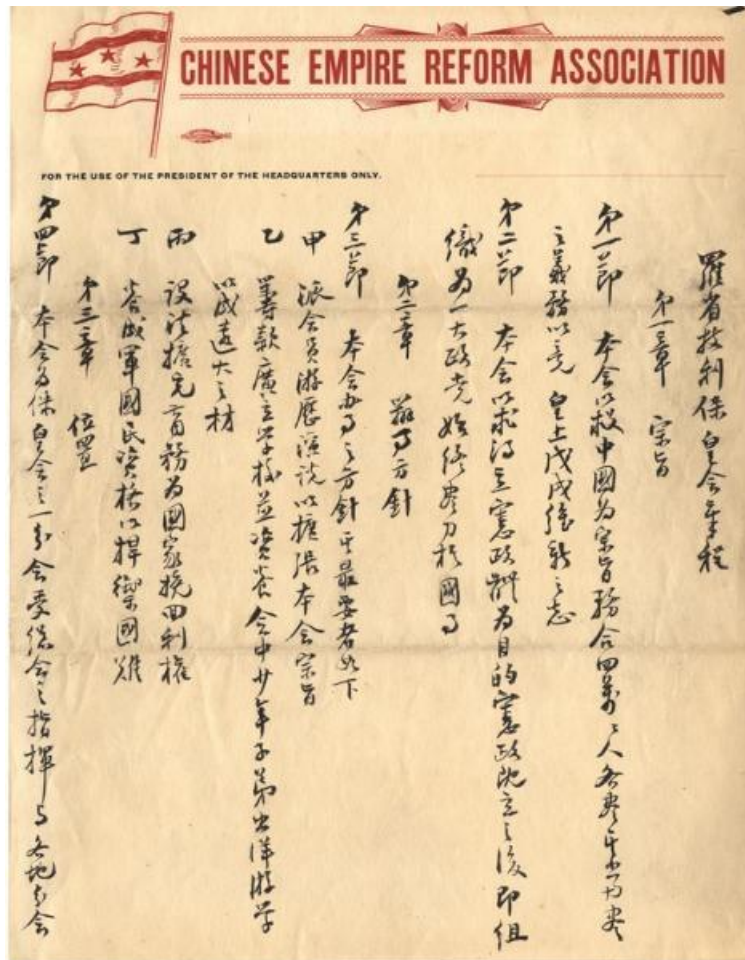 CHINESE EMPIRE REFORM ASSOCIATION
FOR THE USE OF THE PRESIDENT OF THE HEADQUARTERS ONLY.
羅省技利保皇会章程
第一章 宗旨
第一節 本会以救中國为宗旨務合四萬〻人各盡其所当盡
之義務以竟 皇上戊戌維新之志
第二節 本会以求得立憲政體为目的憲政既立之後即組
織为一大政党始終盡力於國事
第二章 辦事方針
第三節 本会办事之方針其最要者如下
甲 派会員游歷演説以擴張本会宗旨
乙 籌款廣立学校並資養会中少年子弟出洋游学
以成遠大之材
丙 設法擴充商務为國家挽回利權
丁 養成軍國民資格以捍禦國難
第三章 位置
第四節 本会为保皇会之一分会受總会之指揮与各地分会